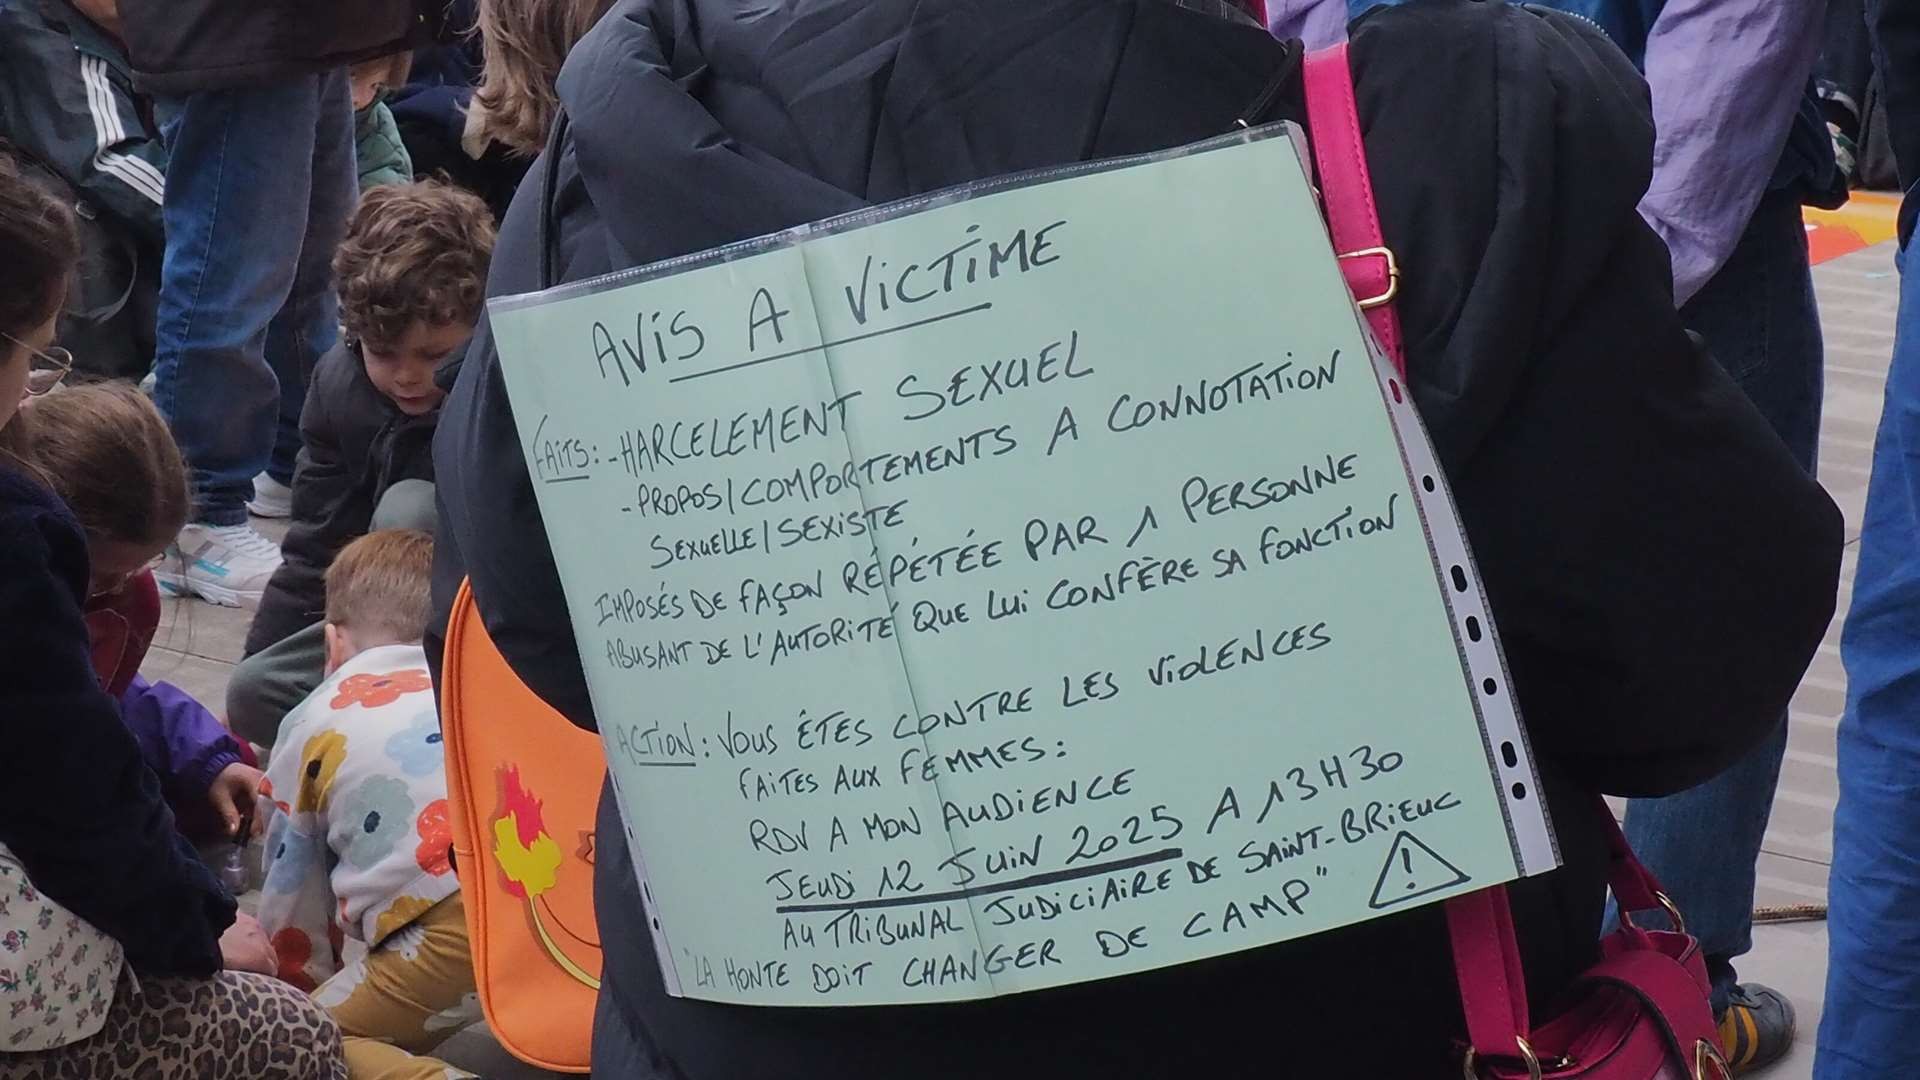 AVIS A VICTIME
FAITS: - HARCELEMENT SEXUEL
- PROPOS/COMPORTEMENTS A CONNOTATION
SEXUELLE/SEXISTE
IMPOSÉS DE FAÇON RÉPÉTÉE PAR 1 PERSONNE
ABUSANT DE L'AUTORITÉ QUE LUI CONFÈRE SA FONCTION
ACTION: VOUS ÊTES CONTRE LES VIOLENCES
FAITES AUX FEMMES:
RDV A MON AUDIENCE
JEUDI 12 JUIN 2025 A 13H30
AU TRIBUNAL JUDICIAIRE DE SAINT-BRIEUC
"LA HONTE DOIT CHANGER DE CAMP" !